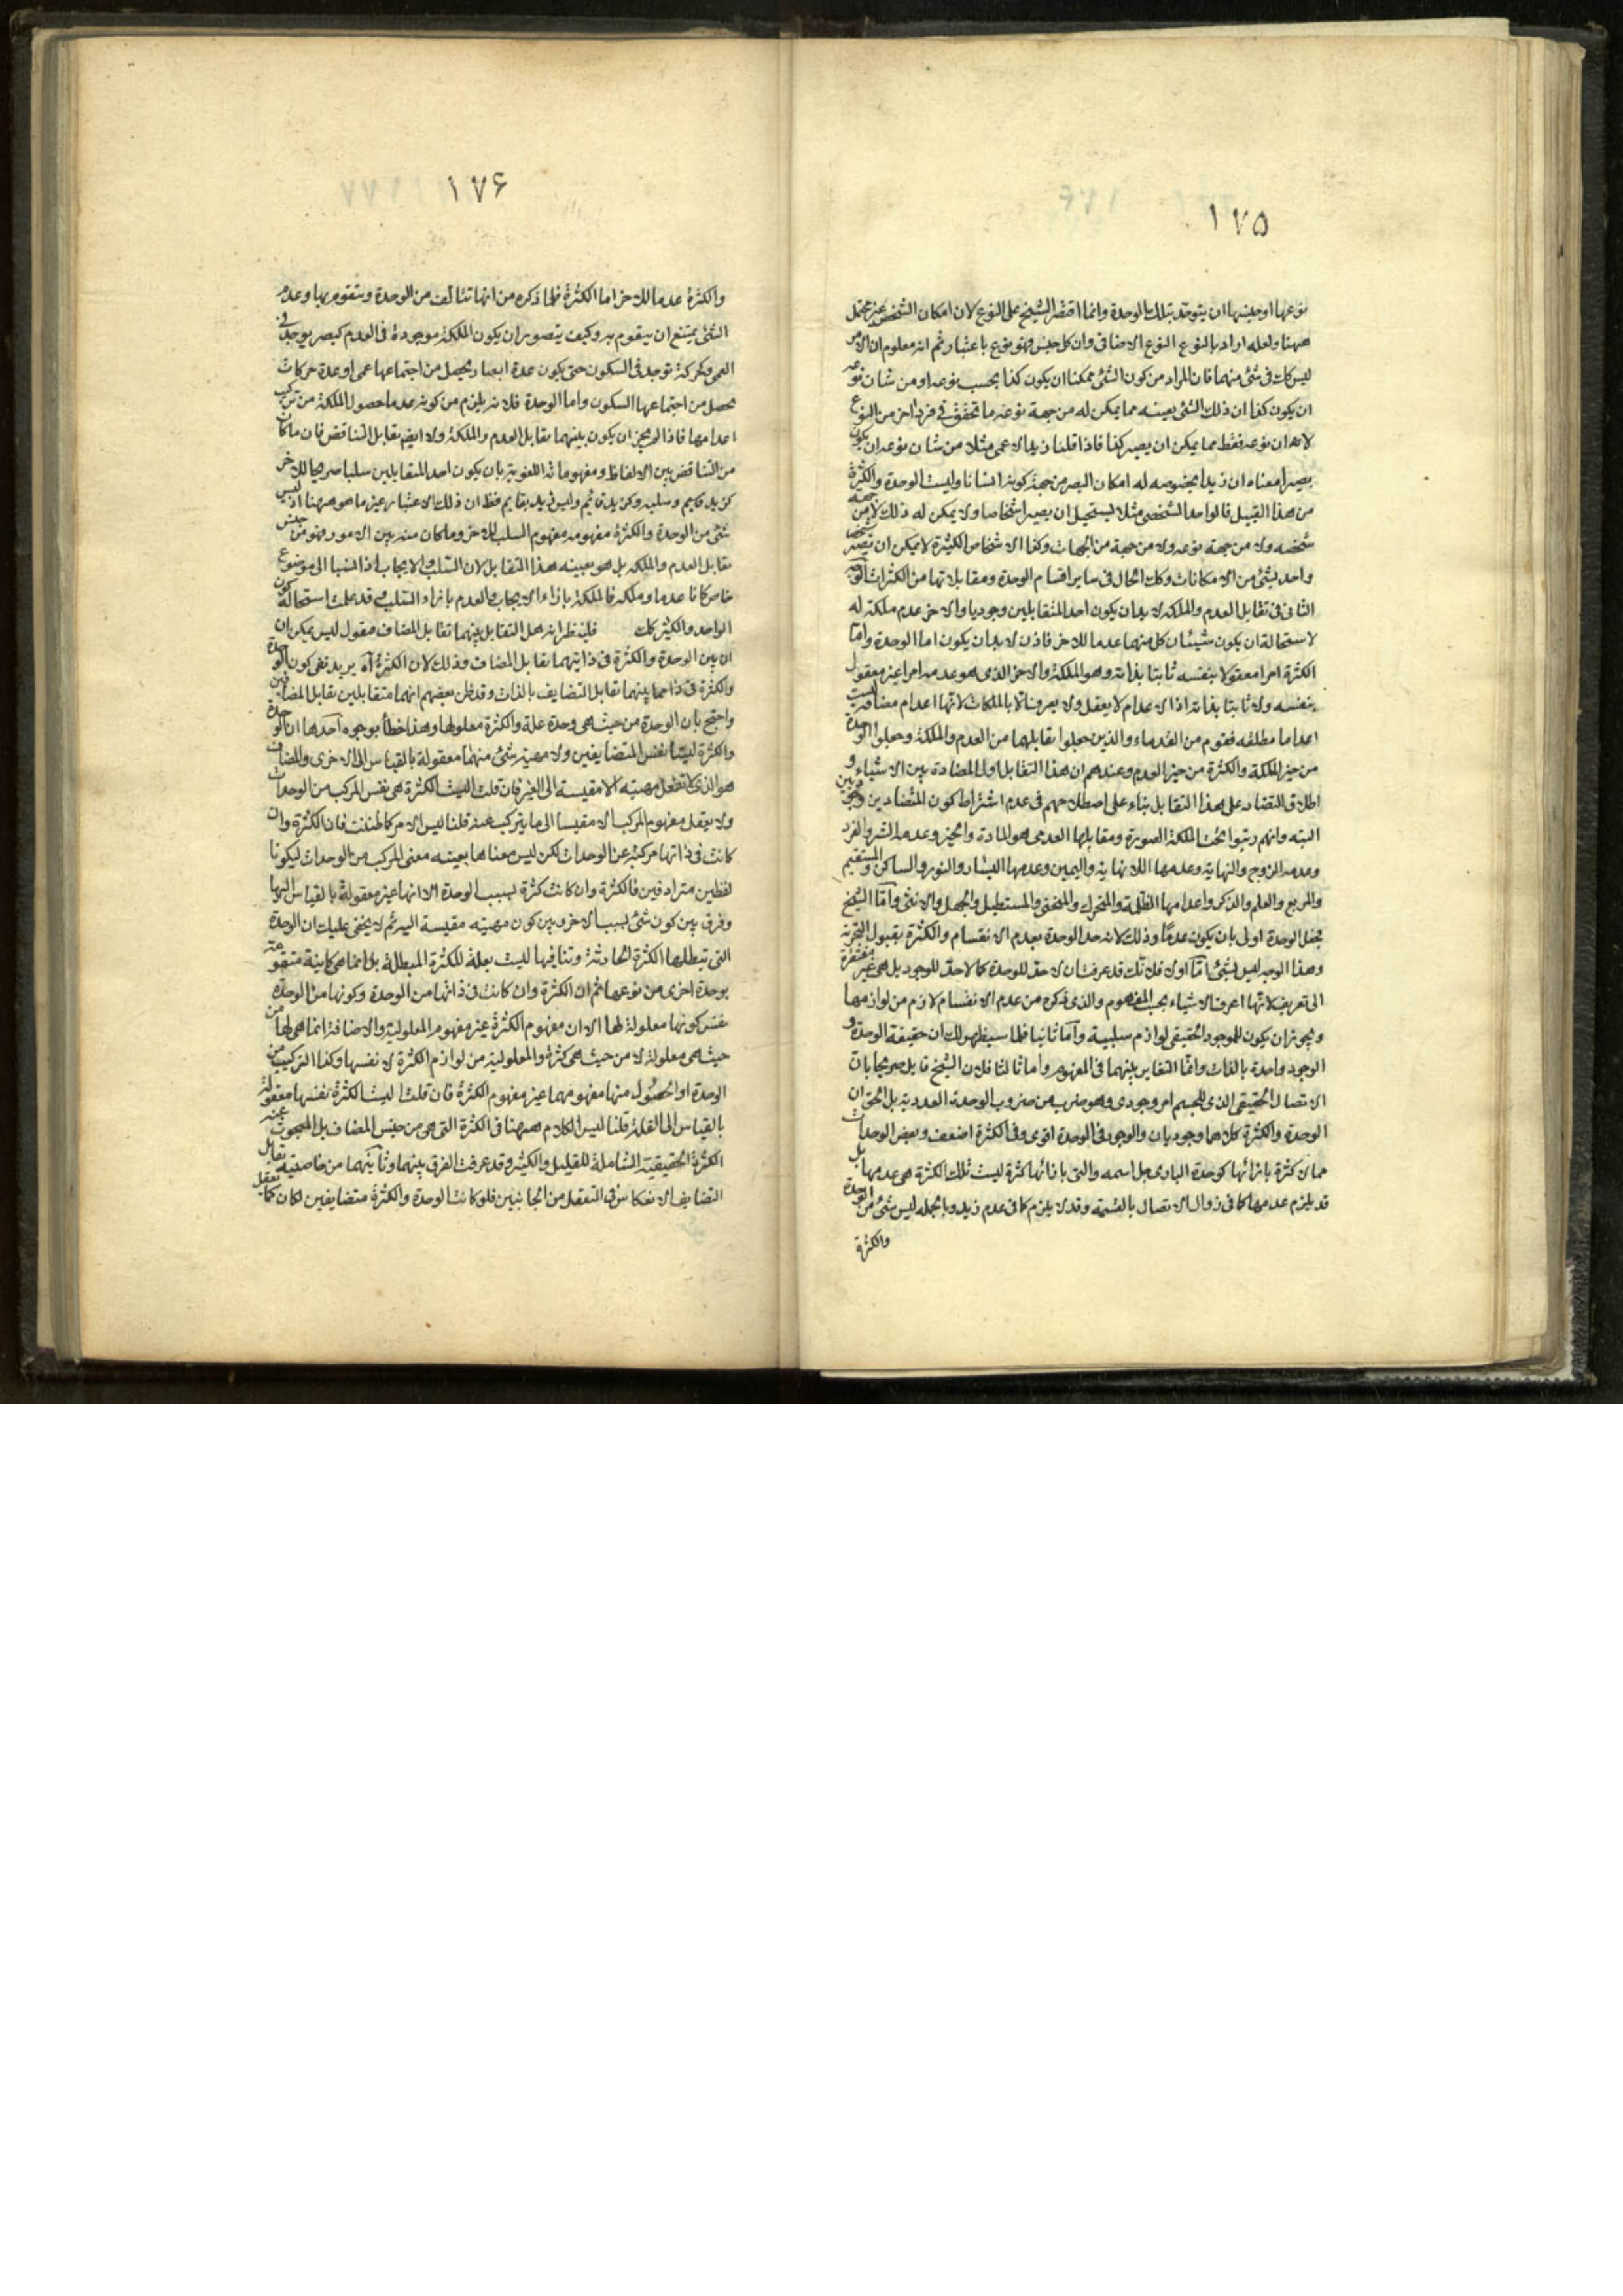 ١٧٥
نوعها او جنسها ان يتوحد بتلك الوحدة وانما اقتصر الشيخ على النوع لان امكان الشخص غير محتمل
ههنا ولعله اراد بالنوع النوع الاضافى وان كل جنس فهو نوع باعتبار ثم انه معلوم ان الامر
ليس كك فى شئ منهما فان المراد من كون الشئ ممكنا ان يكون كذا بحسب نوعه او من شان نوعه
ان يكون كذا ان ذلك الشئ بعينه مما يمكن له من جهة نوعه ما تحقق فى فرد اخر من النوع
لا ان نوعه فقط مما يمكن ان يصير كذا فاذا قلنا زيد الاعمى مثلا من شان نوعه ان يكون
بصيرا معناه ان زيدا بخصوصه له امكان البصر من جهة كونه انسانا وليست الوحدة والكثرة
من هذا القبيل فالواحد الشخصى مثلا يستحيل ان يصير اشخاصا ولا يمكن له ذلك لا من جهة
شخصه ولا من جهة نوعه ولا من جهة من الجهات وكذا الاشخاص الكثيرة لا يمكن ان تصير شخصا
واحدا بشئ من الامكانات وكك الحال فى ساير اقسام الوحدة ومقابلاتها من الكثرات الوجه
الثانى فى تقابل العدم والملكه لا بد ان يكون احد المتقابلين وجوديا والاخر عدم ملكته له
لاستحالة ان يكون شيئان كل منهما عدما للاخر فاذن لا بد ان يكون اما الوحدة واما
الكثرة امرا معقولا بنفسه ثابتا بذاته وهو الملكة والاخر الذى هو عدمه امرا غير معقول
بنفسه ولا ثابتا بذاته اذ الاعدام لا يعقل ولا يعرف الا بالملكات لانها اعدام مضافة ليست
اعداما مطلقه فقوم من القدماء والذين جعلوا تقابلهما من العدم والملكة وجعلوا الوحدة
من حيز الملكة والكثرة من حيز العدم وعندهم ان هذا التقابل اول المضادة بين الاشياء و
اطلاق التضاد على هذا التقابل بناء على اصطلاحهم فى عدم اشتراط كون المتضادين وجوديين
البته وانهم رتبوا تحت الملكة الصورة ومقابلها العدمى هو المادة والخير وعدمه الشر والفرد
وعدمه الزوج والنهاية وعدمها اللانهاية واليمين وعدمها اليسار والنور والساكن والمستقيم
والمربع والعلم والذكر واعدامها الظلمة والمتحرك والمنحنى والمستطيل والجهل والانثى واما الشيخ
جعل الوحدة اولى بان يكون عدما وذلك لانه حد الوحدة بعدم الانقسام والكثرة بقبول التجزية
وهذا الوجه ليس بشئ اما اولا فلانك قد عرفت ان لا حد للوحدة كما لا حد للوجود بل هى غير مفتقرة
الى تعريف لانها اعرف الاشياء بحسب المفهوم والذى ذكره من عدم الانقسام لازم من لوازمها
ويجوز ان يكون للموجود الحقيقى لوازم سلبية واما ثانيا فلما سيظهر لك ان حقيقة الوحدة و
الوجود واحدة بالذات وانما التغاير بينهما فى المفهوم واما ثالثا فلان الشيخ قايل صريحا بان
الاتصال الحقيقى الذى للجسم امر وجودى وهو ضرب من ضروب الوحدة العددية بل الحق ان
الوحدة والكثرة كلاهما وجوديان والوجود فى الوحدة اقوى وفى الكثرة اضعف وبعض الوحدات
مما لا كثرة بازائها كوحدة البارى جل اسمه والتى بازائها كثرة ليست تلك الكثرة هى عدمها بل
قد يلزم عدمها كما فى زوال الاتصال بالقسمة وقد لا يلزم كما فى عدم زيد وبالجمله ليس شئ من الوحدة
والكثرة
١٧۶
والكثرة عدما للاخر اما الكثرة فلما ذكره من انها تتالف من الوحدة وتتقوم بها وعدم
الشئ يمتنع ان يتقوم به وكيف يتصور ان يكون الملكة موجودة فى العدم كبصر يوجد فى
العمى وحركة توجد فى السكون حتى يكون عدة ابصار يحصل من اجتماعها عمى او عدة حركات
يحصل من اجتماعها السكون واما الوحدة فلانه يلزم من كونه عدما حصول الملكة من تركيب
اعدامها فاذا لم يجز ان يكون بينهما تقابل العدم والملكة ولا ايضم تقابل التناقض فان ما كان
من التناقض بين الالفاظ ومفهوماته اللغوية بان يكون احد المتقابلين سلبا صريحا للاخر
كزيد قايم وسلبه وكزيد قائم وليس زيد بقايم فظ ان ذلك الاعتبار غير ما هو ههنا اذ ليس
شئ من الوحدة والكثرة مفهومه مفهوم السلب للاخر وما كان منه بين الامور فهو من جنس
تقابل العدم والملكه بل هو بعينه هذا التقابل لان السلب والايجاب اذا نسبا الى موضوع
خاص كانا عدما وملكه فالملكة بازاء الايجاب والعدم بازاء السلب وقد علمت استحالة كون
الواحد والكثير كك فلينظر انه هل التقابل بينهما تقابل المضاف مقول ليس يمكن ان
ان بين الوحدة والكثرة فى ذاتيهما تقابل المضاف وذلك لان الكثرة اه يريد نفى كون الوحدة
والكثرة فى ذاتهما بينهما تقابل التضايف بالذات وقد ظن بعضهم انهما متقابلين تقابل المضافين
واحتج بان الوحدة من حيث هى وحدة علة والكثرة معلولها وهذا خطأ بوجوه احدها ان الوحدة
والكثرة ليستا نفس المتضايفين ولا مهية شئ منهما معقولة بالقياس الى الاخرى والمضاف
هو الذى لا تعقل مهيته الا مقيسة الى الغير فان قلت اليست الكثرة هى نفس المركب من الوحدات
ولا يعقل مفهوم المركب الا مقيسا الى ما يتركب عنه قلنا ليس الامر كما ظننت فان الكثرة وان
كانت فى ذاتها مركبة عن الوحدات لكن ليس معناها بعينه معنى المركب من الوحدات ليكونا
لفظين مترادفين فالكثرة وان كانت كثرة بسبب الوحدة الا انها غير معقولة بالقياس اليها
وفرق بين كون شئ بسبب الاخر وبين كون مهيته مقيسة اليه ثم لا يخفى عليك ان الوحدة
التى تبطلها الكثرة الحادثة وتنافيها ليست بعلة للكثرة المبطلة بل انما هى كاينة متقومة
بوحدة اخرى من نوعها ثم ان الكثرة وان كانت فى ذاتها من الوحدة وكونها من الوحدة
نفس كونها معلولة لها الا ان مفهوم الكثرة غير مفهوم المعلولية والاضافة انما هى لها من
حيث هى معلولة لا من حيث هى كثرة والمعلولية من لوازم الكثرة لا نفسها وكذا التركيب من
الوحدة او الحصول منها مفهومهما غير مفهوم الكثرة فان قلت اليست الكثرة نفسها معقولة
بالقياس الى القلة قلنا ليس الكلام ههنا فى الكثرة التى هى من جنس المضاف بل المبحوث عنه
الكثرة الحقيقية الشاملة للقليل والكثير وقد عرفت الفرق بينهما وثانيهما من خاصية تقابل
التضايف الانعكاس فى التعقل من الجانبين فلو كانت الوحدة والكثرة متضايفين لكان كما تعقل